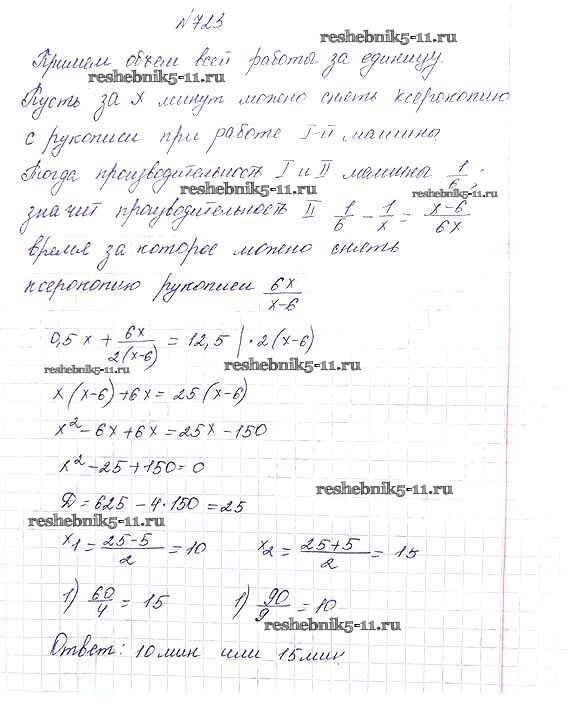 №723
Примем объем всей работы за единицу.
reshebnik5-11.ru
reshebnik5-11.ru
Пусть за x минут можно снять ксерокопию
с рукописи при работе I-й машина.
Тогда производительность I и II машина 1/6;
reshebnik5-11.ru
reshebnik5-11.ru
значит производительность II 1/6 - 1/x = x-6/6x
время за которое можно снять
ксерокопию рукописи 6x/x-6
0,5x + 6x/2(x-6) = 12,5 | · 2(x-6)
reshebnik5-11.ru
reshebnik5-11.ru
x(x-6)+6x = 25(x-6)
x²-6x+6x = 25x-150
x²-25+150=0
reshebnik5-11.ru
Д = 625 - 4·150 = 25
reshebnik5-11.ru
x₁ = 25-5/2 = 10 x₂ = 25+5/2 = 15
1) 60/4 = 15 1) 90/9 = 10
reshebnik5-11.ru
Ответ: 10 мин или 15 мин